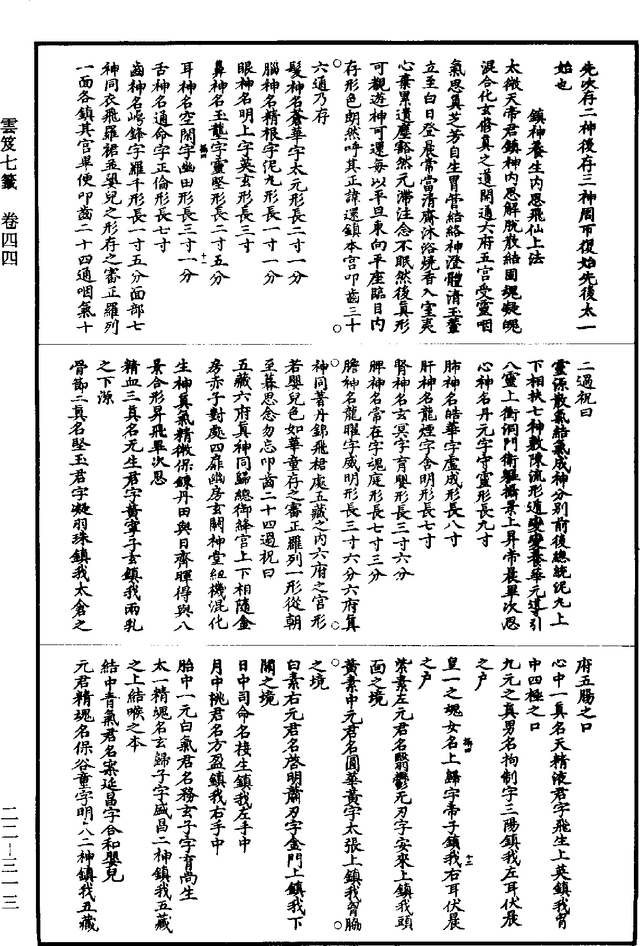 先次存二神後存三神周而復始先後太一
始也
鎮神養生內思飛仙上法
太微天帝君鎮神內思解脫散結固魂凝魄
混合化玄修真之道開通六府五宮受靈咽
氣思真芝芳自生胃管結絡神澄體清玉華
立至白日登晨常當清齋沐浴燒香入室夷
心棄累遣塵豁然元滯注念不眠然後真形
可觀遊神可還每以平旦東向平座臨目內
存形色朗然呼其正諱還鎮本宮叩齒三十
六通乃存
髮神名蒼華字太元形長二寸一分
腦神名精根字泥丸形長一寸一分
眼神名明上字英玄形長三寸
鼻神名玉壟字靈堅形長二寸五分
耳神名空閑字幽田形長三寸一分
舌神名通命字正倫形長七寸
齒神名崿鋒字羅千形長一寸五分面部七
神同衣飛羅裙並嬰兒之形存之審正羅列
一面各鎮其宮畢便叩齒二十四通咽氣十
二過祝曰
靈源散氣結氣成神分別前後總統泥丸上
下相扶七神敷陳流形遁變變養華元導引
八靈上衝洞門衛軀攝景上昇帝晨畢次思
心神名丹元字守靈形長九寸
肺神名皓華字虛成形長八寸
肝神名龍煙字含明形長七寸
腎神名玄冥字育嬰形長三寸六分
脾神名常在字魂庭形長七寸三分
膽神名龍曜字威明形長三寸六分六府真
神同著丹錦飛裙處五藏之內六府之宮形
若嬰兒色如華童存之審正羅列一形從朝
至暮思念勿忘叩齒二十四過祝曰
五藏六府真神同歸總御絳宮上下相隨金
房赤子對處四扉幽房玄闕神堂紐機混化
生神真氣精微保鍊丹田與日齊暉得與八
景合形昇飛畢次思
精血三真名元生君字黃寧子玄鎮我兩乳
之下源
骨節二真名堅玉君字凝羽珠鎮我太倉之
府五腸之口
心中一真名天精液君字飛生上英鎮我胷
中四極之口
九元之真男名拘制字三陽鎮我左耳伏晨
之戶
皇一之魂女名上歸字帝子鎮我右耳伏晨
之戶
紫素左元君名翳鬱元刃字安來上鎮我頭
面之境
黃素中元君名圓華黃字太張上鎮我胷脇
之境
白素右元君名啓明蕭刃字金門上鎮我下
關之境
日中司命名接生鎮我左手中
月中桃君名方盈鎮我右手中
胎中一元白氣君名務玄子字育尚生
太一精魂名玄歸子字盛昌二神鎮我五藏
之上結喉之本
結中青氣君名案延昌字合和嬰兒
元君精魂名保谷童字明夫二神鎮我五藏
雲笈七籤 卷四四
二二—三一三